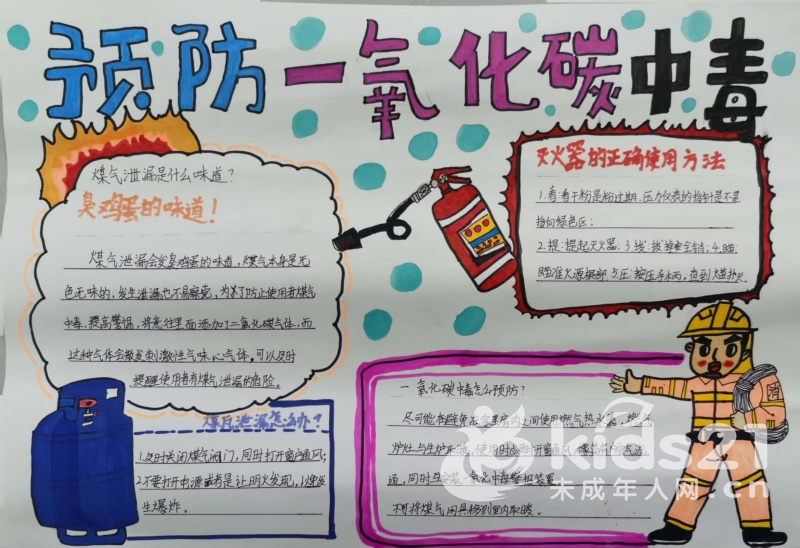 预防一氧化碳中毒
煤气泄漏是什么味道？
臭鸡蛋的味道！
煤气泄漏会发臭鸡蛋的味道，煤气本身是无
色无味的，发生泄漏也不易察觉，为了防止使用者煤气
中毒，提高警惕，将意往里面添加了二氧化碳气体，而
这种气体会散发刺激性气味心气体。可以及时
提醒使用者有煤气泄漏的危险。
灭火器的正确使用方法
1.看：看干粉是粉过期、压力仪表的指针是不是
指向绿色区；
2.提：提起灭火器；3.拔：拔掉保全销；4.瞄
瞄准火源根部 5.压：按压手柄，直到火
煤气泄漏怎么办？
1.及时关闭煤气阀门，同时打开窗户通风；
2.不要打开电源或者是让明火发现，以免发
生爆炸。
一氧化碳中毒怎么预防？
尽可能在避免在家里房内之间使用燃气热水器，燃气
炉灶与生炉
同时
不可将煤气用具移到室内取暖。
kids21.cn
未成年人网